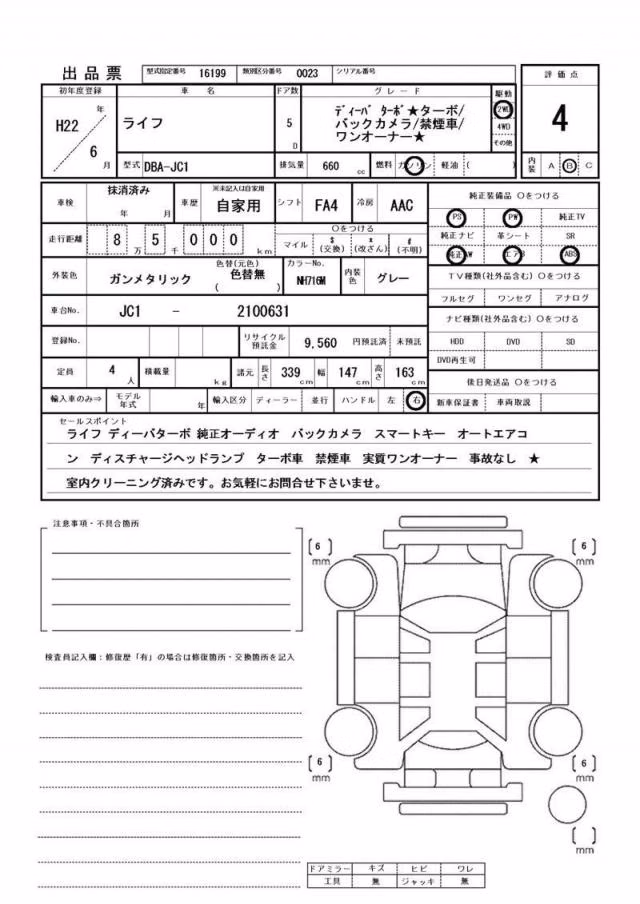 出品票 型式指定番号 16199 類別区分番号 0023 シリアル番号
初年度登録 車名 ドア数 グレード 駆動 評価点
H22 年 6 月 ライフ 5 D ﾃﾞｨｰﾊﾞ ﾀｰﾎﾞ★ターボ/
バックカメラ/禁煙車/
ワンオーナー★
2WD
4WD
その他
4
型式 DBA-JC1 排気量 660 cc 燃料 ガソリン 軽油 ( ) 内装 A B C
車検 抹消済み 年 月 車歴 ※未記入は自家用 自家用 シフト FA4 冷房 AAC
走行距離 8 万 5 千 0 0 0 km
○をつける
マイル $(交換) *(改ざん) #(不明)
外装色 ガンメタリック 色替(元色) 色替無 ( ) カラーNo. NH716M 内装色 グレー
車台No. JC1 - 2100631
登録No. リサイクル預託金 9,560 円預託済 未預託
定員 4 人 積載量 kg 諸元 長さ 339 cm 幅 147 cm 高さ 163 cm
輸入車のみ⇒ モデル年式 年 輸入区分 ディーラー 並行 ハンドル 左 右
純正装備品 ○をつける
PS PW 純正TV
純正ナビ 革シート SR
純正AW エアB ABS
TV種類(社外品含む) ○をつける
フルセグ ワンセグ アナログ
ナビ種類(社外品含む) ○をつける
HDD DVD SD
DVD再生可
後日発送品 ○をつける
新車保証書 車両取説
セールスポイント
ライフ ディーバターボ 純正オーディオ バックカメラ スマートキー オートエアコ
ン ディスチャージヘッドランプ ターボ車 禁煙車 実質ワンオーナー 事故なし ★
室内クリーニング済みです。お気軽にお問合せ下さいませ。
注意事項・不具合箇所
検査員記入欄：修復歴「有」の場合は修復箇所・交換箇所を記入
[ 6 ] mm [ 6 ] mm
[ 6 ] mm [ 6 ] mm
[ ] mm
ドアミラー キズ ヒビ ワレ
工具 無 ジャッキ 無